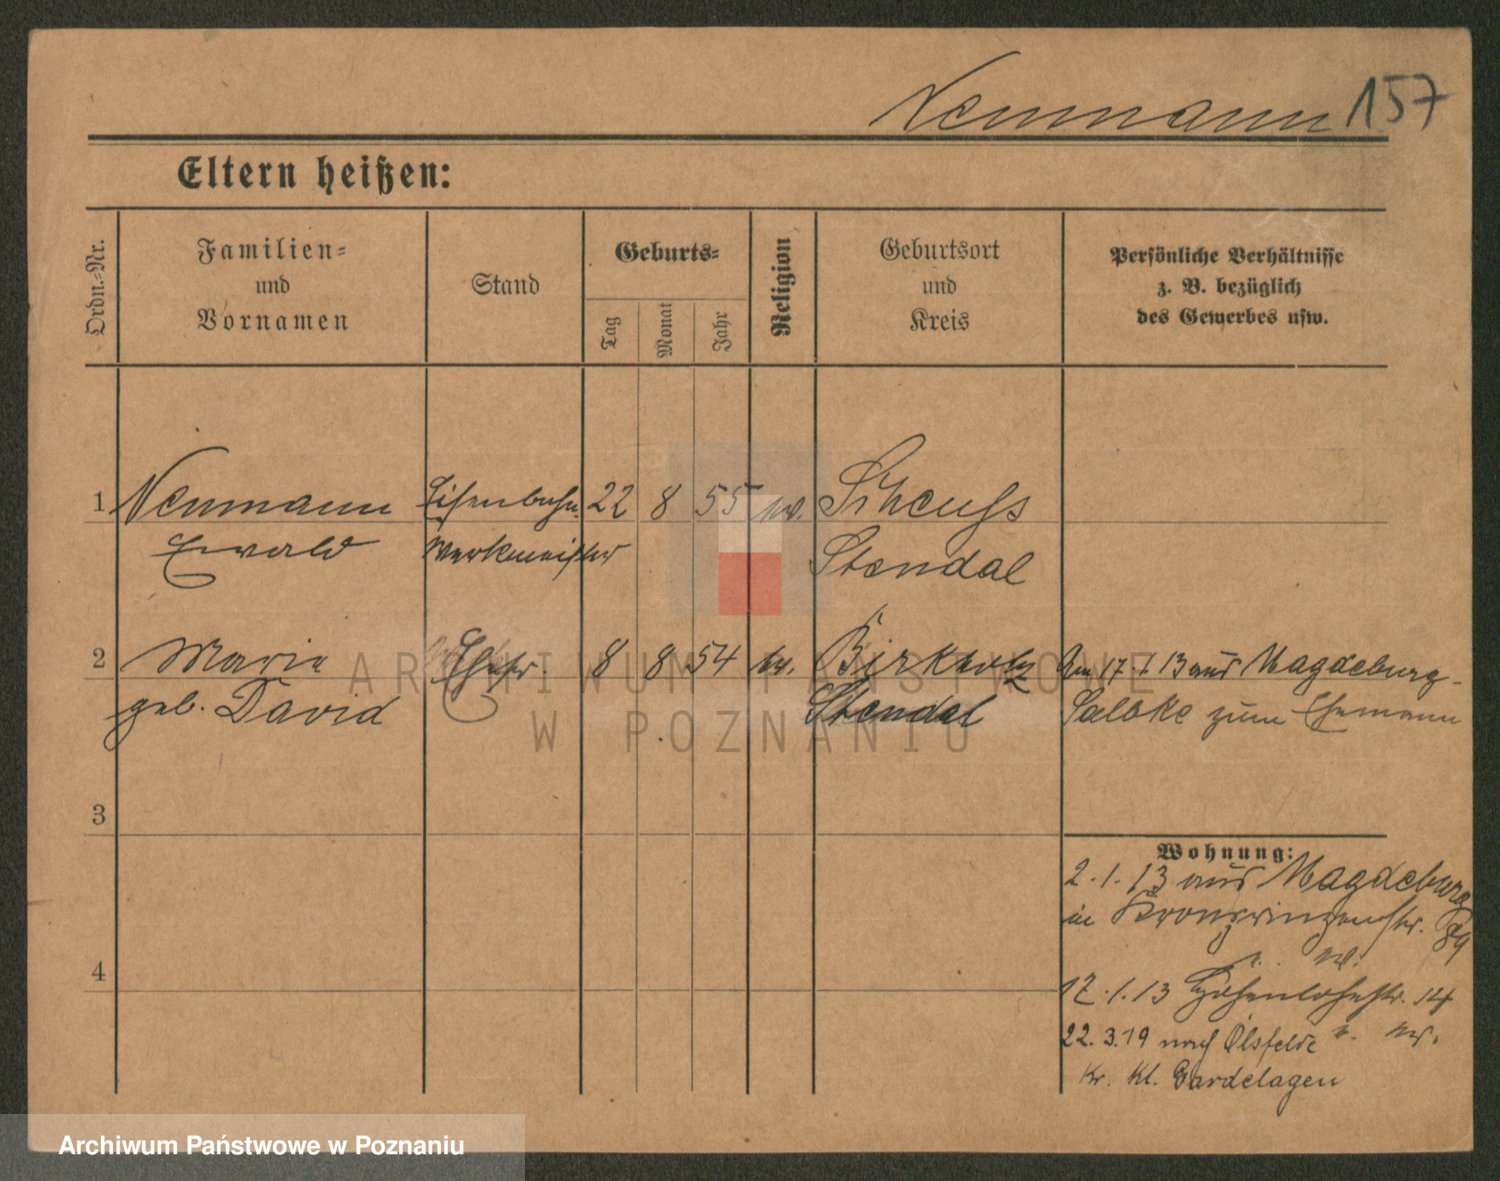 Neumann 157
Eltern heißen:
Ordn.-Nr.
Familien-
und
Vornamen
Stand
Geburts-
Tag
Monat
Jahr
Religion
Geburtsort
und
Kreis
Persönliche Verhältnisse
z. B. bezüglich
des Gewerbes usw.
1 Neumann Eisenbahn 22 8 55 ev.
Ewald Werkmeister Stendal
2 Marie Ehefr 8 8 54 ev. Birkholz Am 17.1.13 aus Magdeburg-
geb. David Stendal Salbke zum Ehemann
3
Wohnung:
2.1.13 aus Magdeburg
in Kronprinzenstr. 89
4
17.1.13 Hohenlohestr. 14
22.3.19 nach Ölsfelde
Kr. Gardelagen
ARCHIWUM PAŃSTWOWE
W POZNANIU
Archiwum Państwowe w Poznaniu